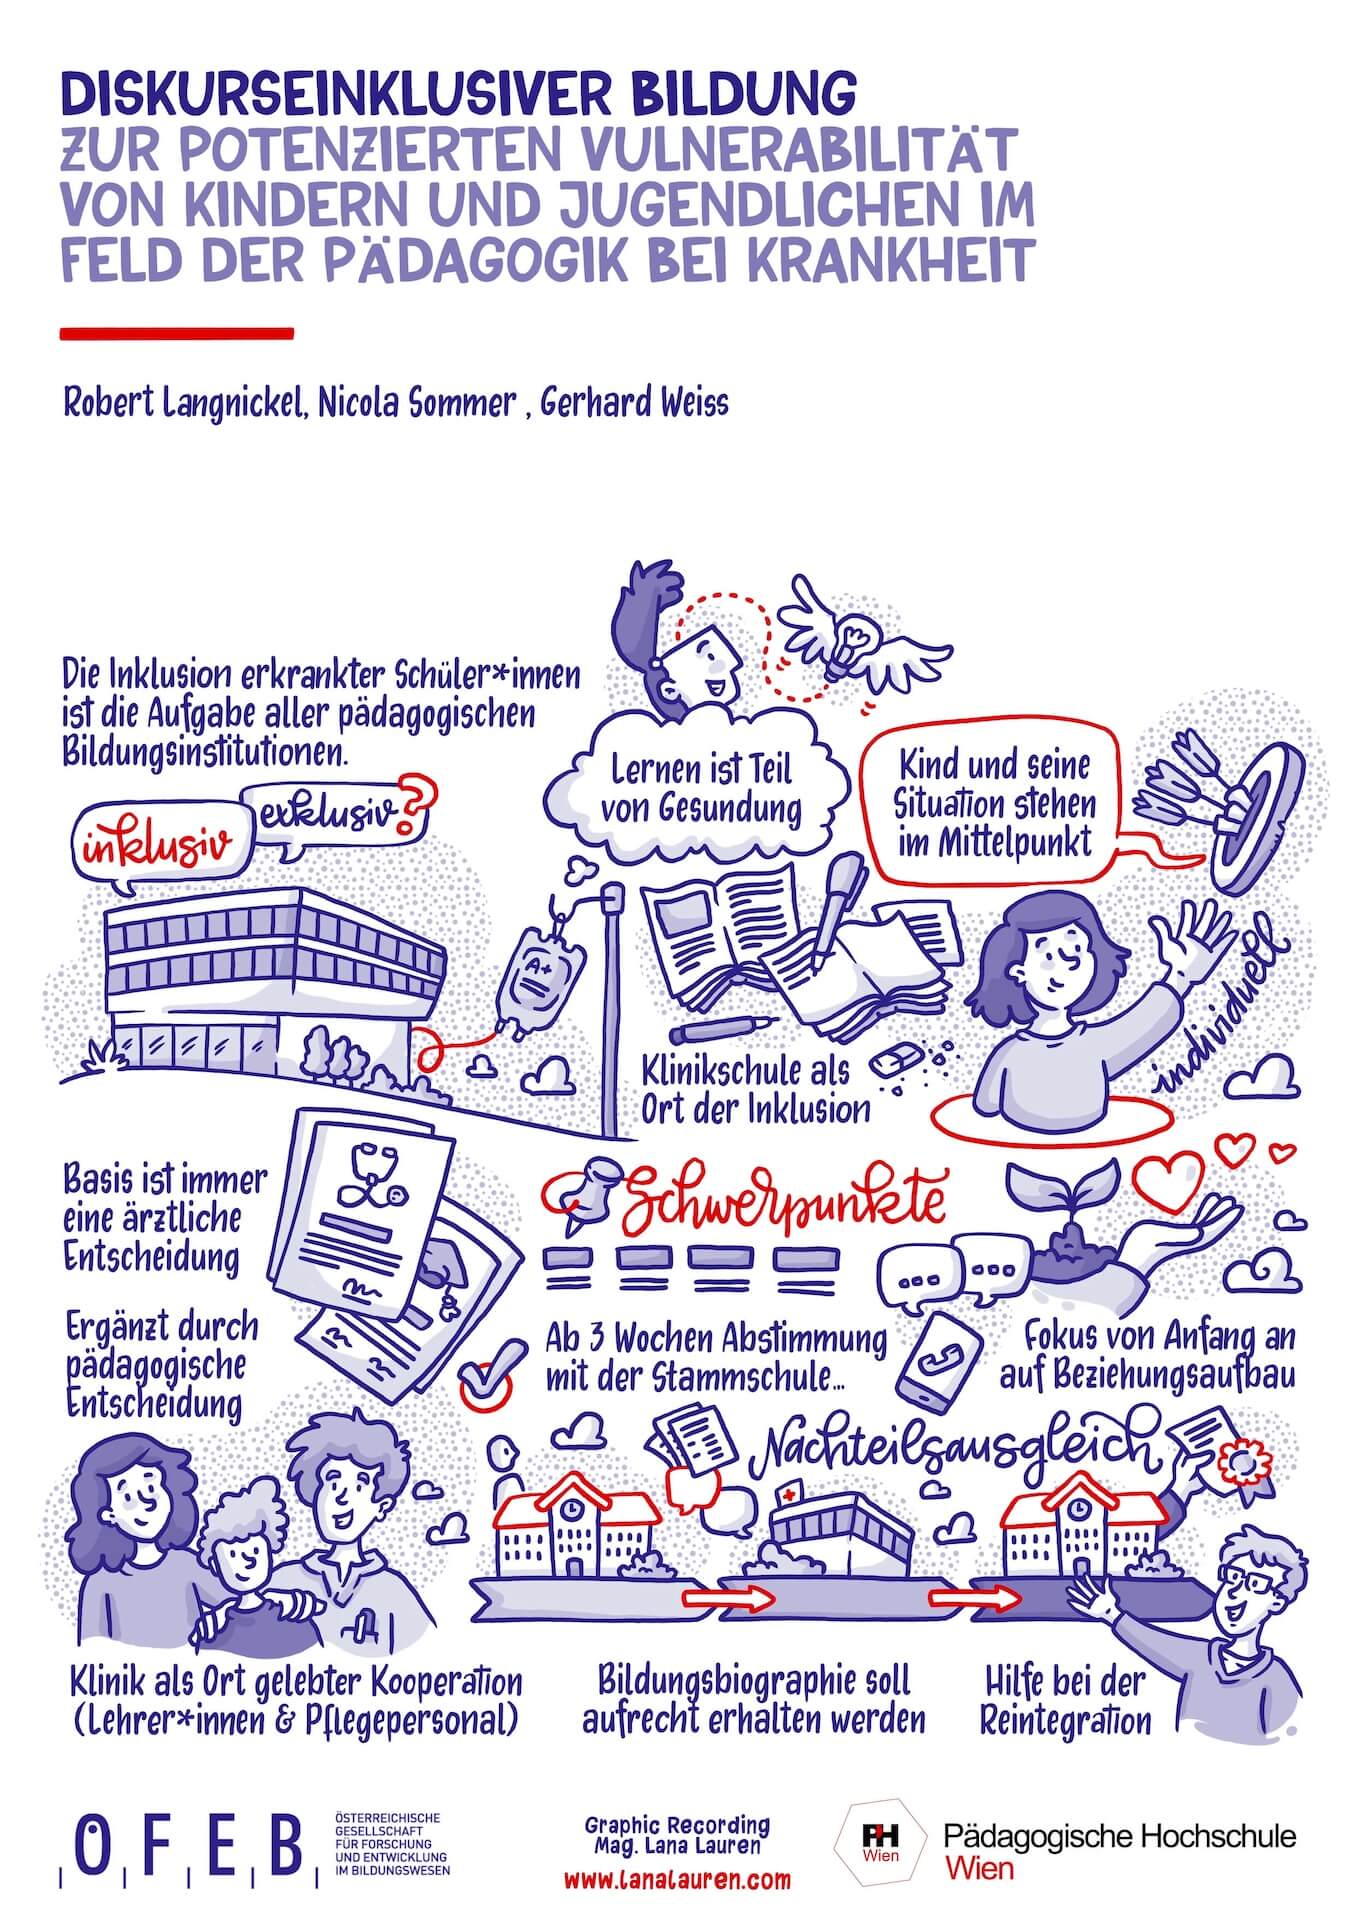 DISKURSEINKLUSIVER BILDUNG
ZUR POTENZIERTEN VULNERABILITÄT
VON KINDERN UND JUGENDLICHEN IM
FELD DER PÄDAGOGIK BEI KRANKHEIT
Robert Langnickel, Nicola Sommer , Gerhard Weiss
Die Inklusion erkrankter Schüler*innen
ist die Aufgabe aller pädagogischen
Bildungsinstitutionen.
inklusiv
exklusiv?
Lernen ist Teil
von Gesundung
Kind und seine
Situation stehen
im Mittelpunkt
individuell
A+
Klinikschule als
Ort der Inklusion
Basis ist immer
eine ärztliche
Entscheidung
Ergänzt durch
pädagogische
Entscheidung
Schwerpunkte
Ab 3 Wochen Abstimmung
mit der Stammschule...
Fokus von Anfang an
auf Beziehungsaufbau
Nachteilsausgleich
Klinik als Ort gelebter Kooperation
(Lehrer*innen & Pflegepersonal)
Bildungsbiographie soll
aufrecht erhalten werden
Hilfe bei der
Reintegration
ÖFEB
ÖSTERREICHISCHE
GESELLSCHAFT
FÜR FORSCHUNG
UND ENTWICKLUNG
IM BILDUNGSWESEN
Graphic Recording
Mag. Lana Lauren
www.lanalauren.com
PH
Wien
Pädagogische Hochschule
Wien